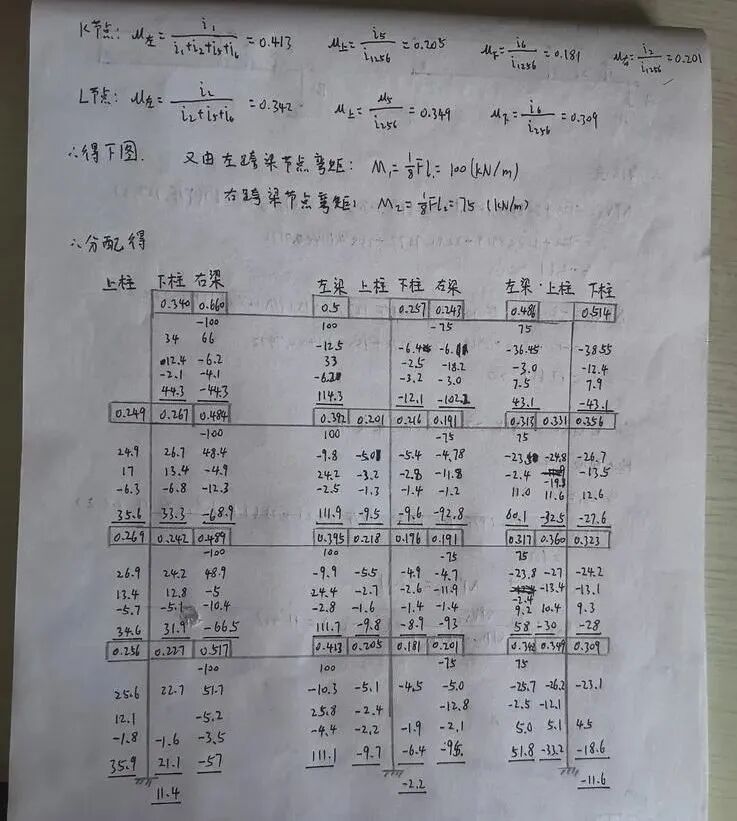 K节点: μ左 = i₁/(i₁+i₂+i₅+i₆) = 0.413 μ上 = i₅/i₁₂₅₆ = 0.205 μ下 = i₆/i₁₂₅₆ = 0.181 μ右 = i₂/i₁₂₅₆ = 0.201
L节点: μ左 = i₂/(i₂+i₅+i₆) = 0.342 μ上 = μ₅/i₂₅₆ = 0.349 μ下 = i₆/i₂₅₆ = 0.309
∴得下图. 又由左跨梁节点弯矩: M₁ = 1/8 Fl₁ = 100 (kN/m)
右跨梁节点弯矩: M₂ = 1/8 Fl₂ = 75 (kN/m)
∴分配得
上柱 下柱 右梁 左梁 上柱 下柱 右梁 左梁 上柱 下柱
0.340 0.660 0.5 0.257 0.243 0.486 0.514
-100 100 -75 75
34 66 -12.5 -6.4 -36.45 -38.55
12.4 -6.2 33 -2.5 -18.2 -3.0 -12.4
-2.1 -4.1 -3.2 -3.0 7.5 7.9
44.3 -44.3 114.3 -12.1 43.1 -43.1
0.249 0.267 0.484 0.392 0.201 0.216 0.191 0.313 0.331 0.356
-100 100 -75 75
24.9 26.7 48.4 -9.8 -5.4 -4.78 -24.8 -26.7
17 13.4 -4.9 24.2 -3.2 -2.8 -11.8 -2.4 -13.5
-6.3 -6.8 -12.3 -2.5 -1.3 -1.4 -1.2 11.0 11.6 12.6
35.6 33.3 -68.9 111.9 -9.5 -9.6 -92.8 60.1 -32.5 -27.6
0.269 0.242 0.489 0.395 0.218 0.196 0.191 0.317 0.360 0.323
-100 100 -75 75
26.9 24.2 48.9 -9.9 -5.5 -4.9 -4.7 -23.8 -27 -24.2
13.4 12.8 -5 24.4 -2.7 -2.6 -11.9 -2.4 -13.4 -13.1
-5.7 -5.1 -10.4 -2.8 -1.6 -1.4 -1.4 9.2 10.4 9.3
34.6 31.9 -66.5 111.7 -9.8 -8.9 -93 58 -30 -28
0.256 0.227 0.517 0.413 0.205 0.181 0.201 0.342 0.349 0.309
-100 100 -75 75
25.6 22.7 51.7 -10.3 -5.1 -4.5 -5.0 -25.7 -26.2 -23.1
12.1 -5.2 25.8 -2.4 -12.8 -2.5 -12.1
-1.8 -1.6 -3.5 -4.4 -2.2 -1.9 -2.1 5.0 5.1 4.5
35.9 21.1 -57 111.1 -9.7 -6.4 -95. 51.8 -33.2 -18.6
11.4 -2.2 -11.6